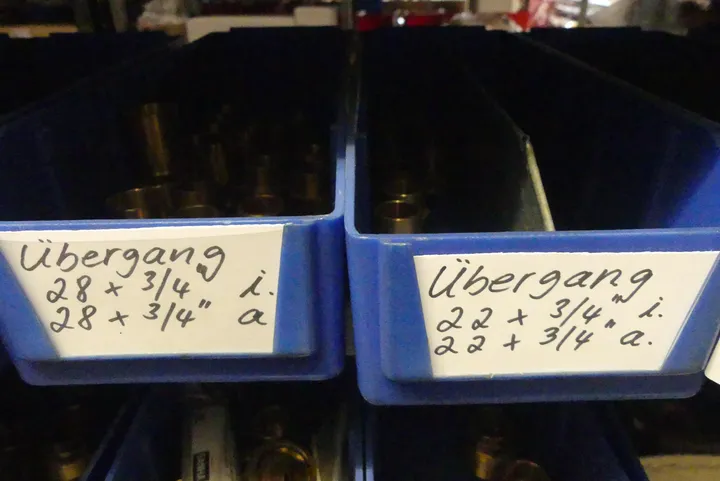 Übergang
28 x 3/4" i.
28 x 3/4" a
Übergang
22 x 3/4" i.
22 x 3/4" a.